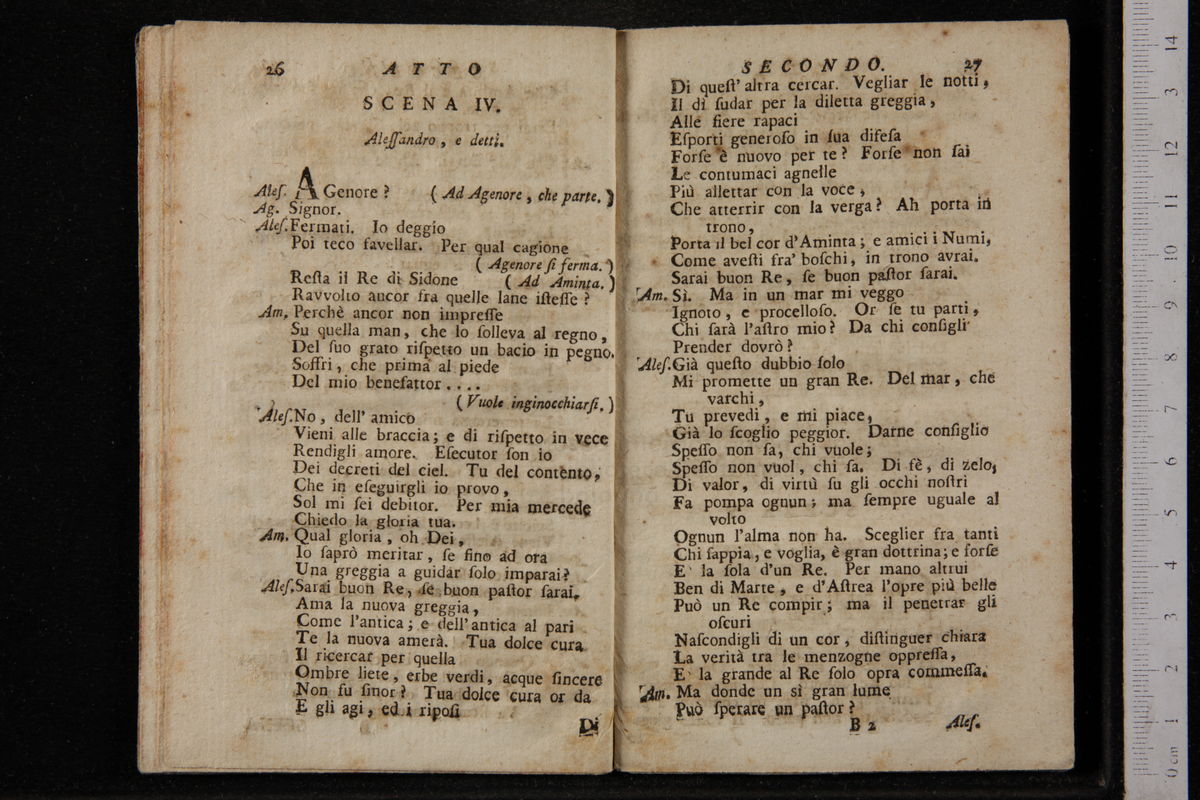 26 ATTO
SCENA IV.
Aleſſandro, e detti.
Aleſ. AGenore? (Ad Agenore, che parte.)
Ag. Signor.
Aleſ. Fermati. Io deggio
Poi teco favellar. Per qual cagione
(Agenore ſi ferma.)
Reſta il Re di Sidone (Ad Aminta.)
Ravvolto ancor fra quelle lane iſteſſe?
Am. Perchè ancor non impreſſe
Su quella man, che lo ſolleva al regno,
Del ſuo grato riſpetto un bacio in pegno.
Soffri, che prima al piede
Del mio benefattor....
(Vuole inginocchiarſi.)
Aleſ. No, dell' amico
Vieni alle braccia; e di riſpetto in vece
Rendigli amore. Eſecutor ſon io
Dei decreti del ciel. Tu del contento,
Che in eſeguirgli io provo,
Sol mi ſei debitor. Per mia mercede
Chiedo la gloria tua.
Am. Qual gloria, oh Dei,
Io ſaprò meritar, ſe fino ad ora
Una greggia a guidar ſolo imparai?
Aleſ. Sarai buon Re, ſe buon paſtor ſarai.
Ama la nuova greggia,
Come l'antica; e dell'antica al pari
Te la nuova amerà. Tua dolce cura
Il ricercar per quella
Ombre liete, erbe verdi, acque ſincere
Non fu ſinor? Tua dolce cura or da
E gli agi, ed i ripoſi
Di
SECONDO. 27
Di queſt' altra cercar. Vegliar le notti,
Il dì ſudar per la diletta greggia,
Alle fiere rapaci
Eſporti generoſo in ſua difeſa
Forſe è nuovo per te? Forſe non ſai
Le contumaci agnelle
Più allettar con la voce,
Che atterrir con la verga? Ah porta in
trono,
Porta il bel cor d'Aminta; e amici i Numi,
Come aveſti fra' boſchi, in trono avrai.
Sarai buon Re, ſe buon paſtor ſarai.
Am. Sì. Ma in un mar mi veggo
Ignoto, e proceloſo. Or ſe tu parti,
Chi ſarà l'aſtro mio? Da chi conſigli
Prender dovrò?
Aleſ. Già queſto dubbio ſolo
Mi promette un gran Re. Del mar, che
varchi,
Tu prevedi, e mi piace,
Già lo ſcoglio peggior. Darne conſiglio
Speſſo non ſa, chi vuole;
Speſſo non vuol, chi ſa. Di fè, di zelo,
Di valor, di virtù ſu gli occhi noſtri
Fa pompa ognun; ma ſempre uguale al
volto
Ognun l'alma non ha. Sceglier fra tanti
Chi ſappia, e voglia, è gran dottrina; e forſe
E' la ſola d'un Re. Per mano altrui
Ben di Marte, e d'Aſtrea l'opre più belle
Può un Re compir; ma il penetrar gli
oſcuri
Naſcondigli di un cor, diſtinguer chiara
La verità tra le menzogne oppreſſa,
E' la grande al Re ſolo opra commeſſa.
Am. Ma donde un sì gran lume
Può ſperare un paſtor?
B 2 Aleſ.
0 cm 1 2 3 4 5 6 7 8 9 10 11 12 13 14